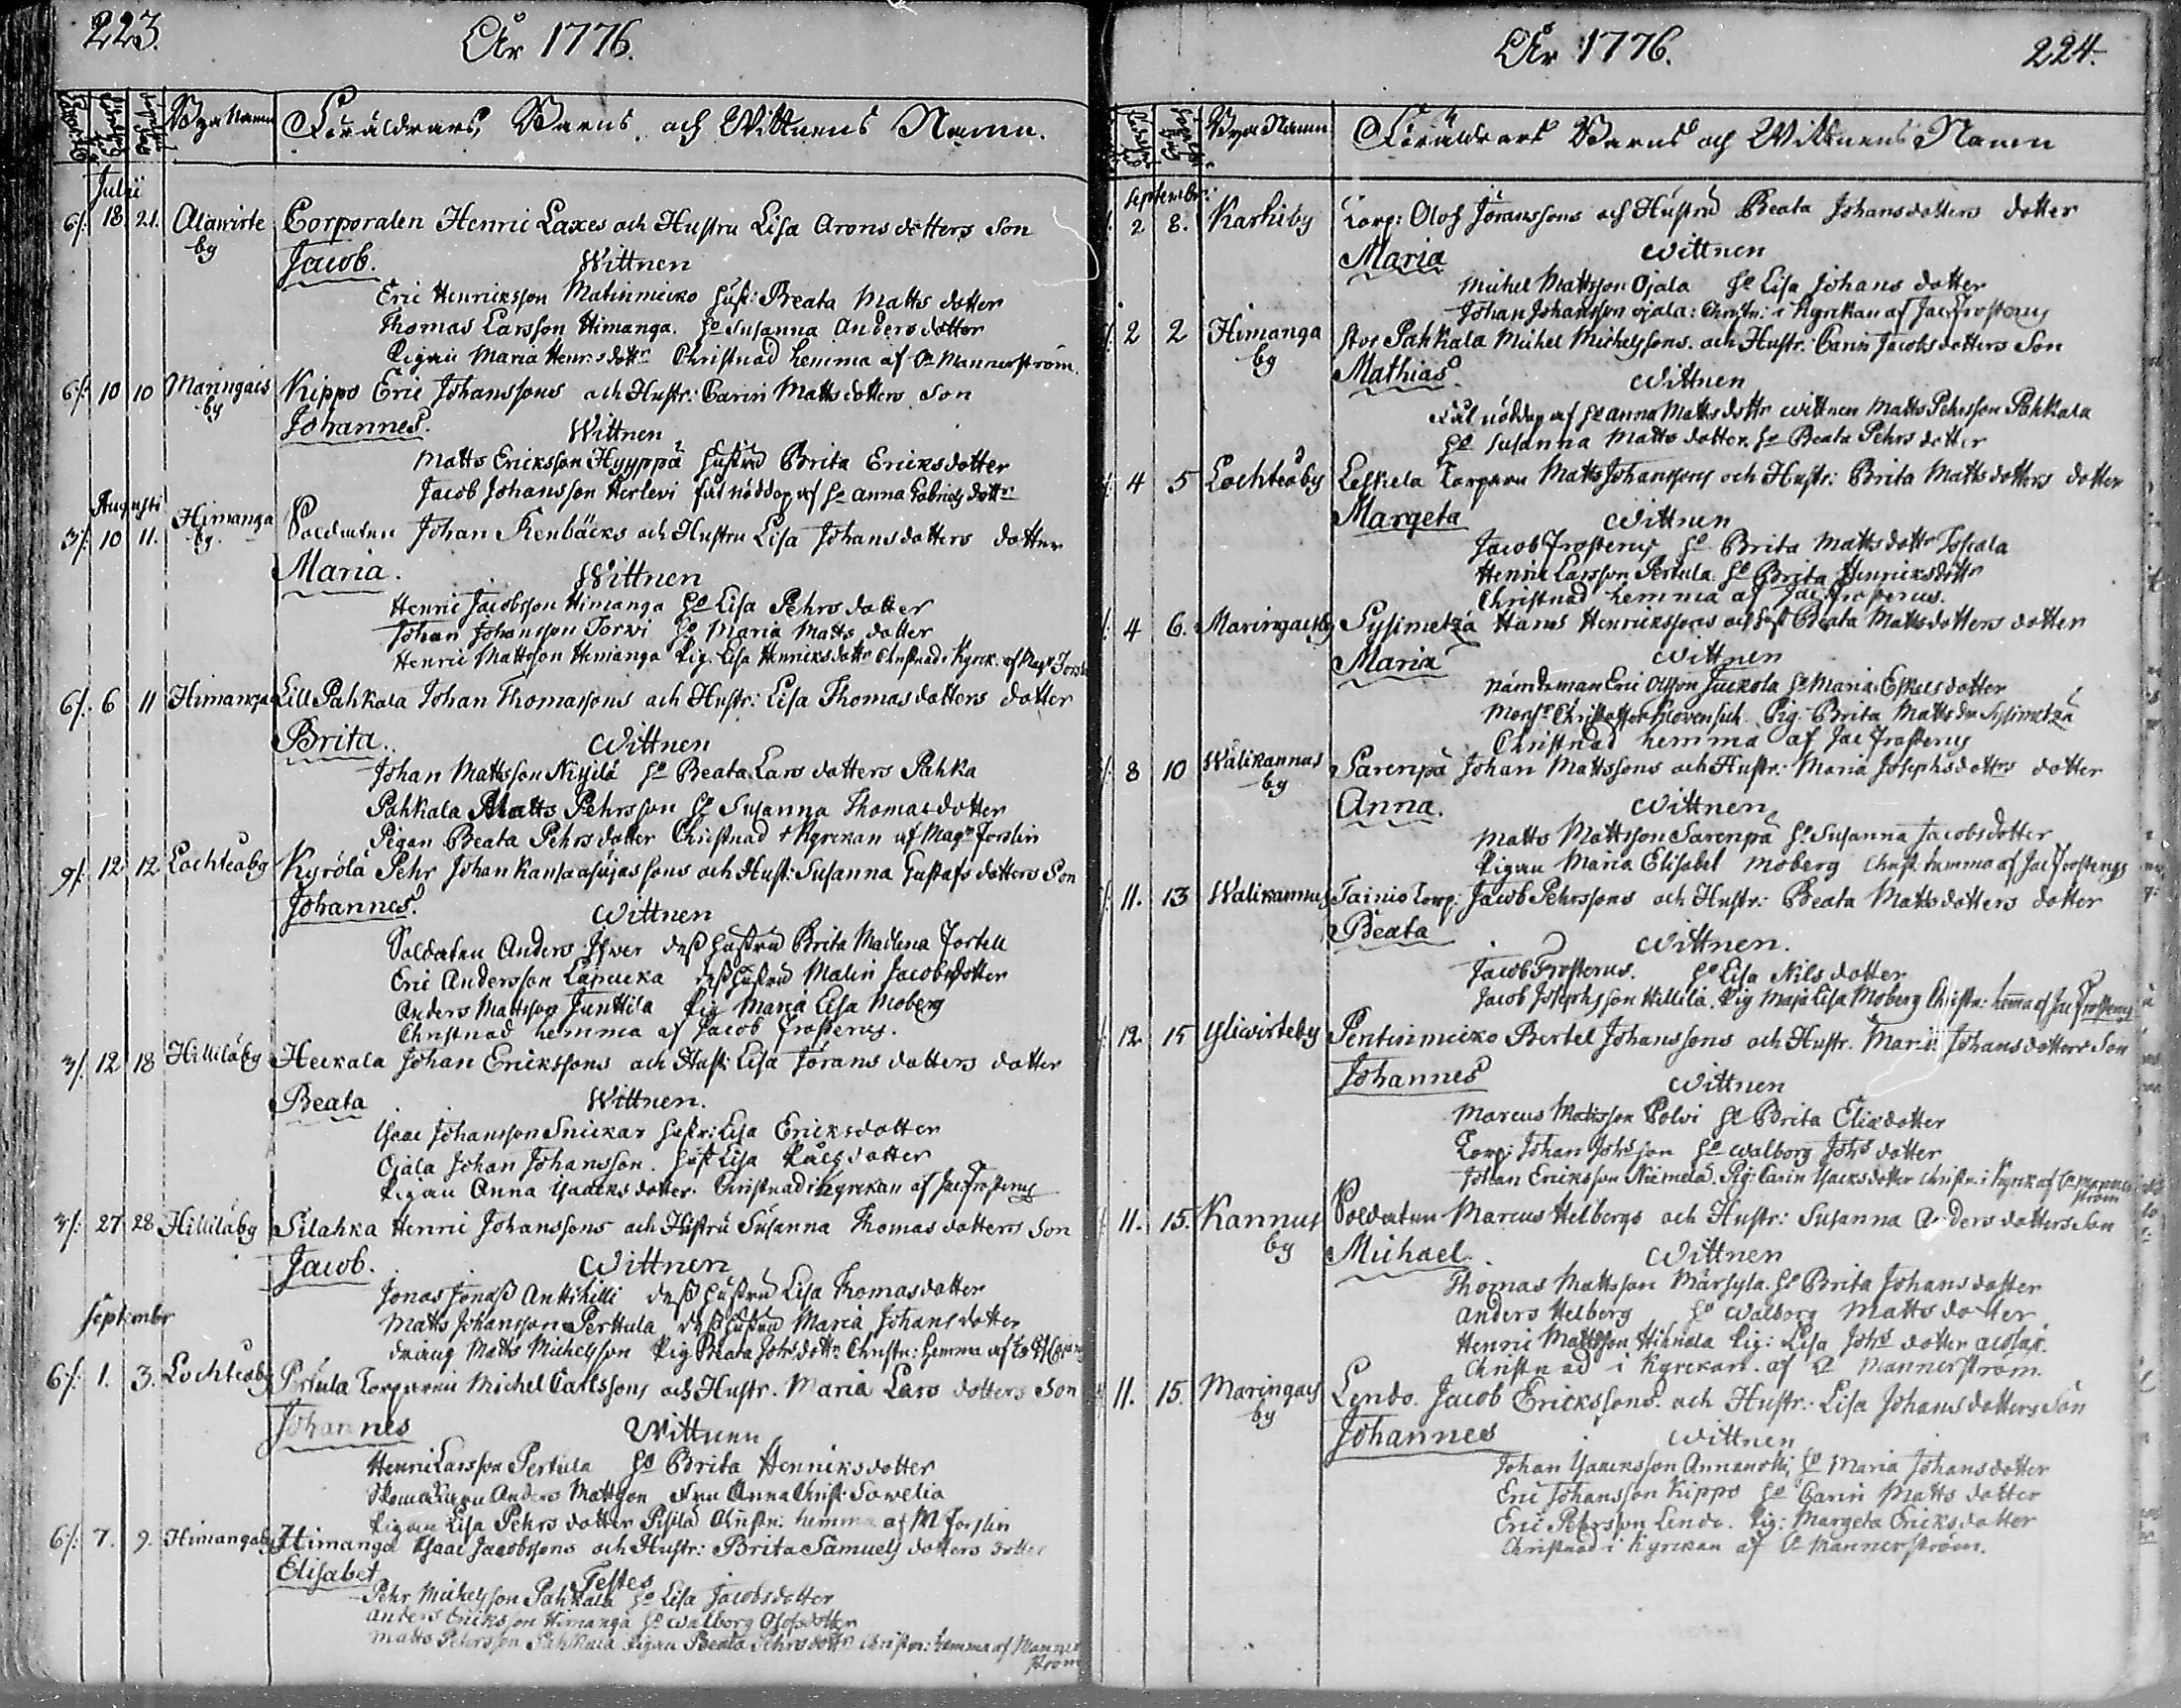 223.
År 1776.
Bya Namn
Föräldrars, Barns och Wittnens Namn.
Julii
6/: 18 21. Alawirte by
Corporalen Henric Laxes och Hustru Lisa Arons dotters Son
Jacob. Wittnen
Eric Henriksson Matinmicko hust: Beata Matts dotter
Thomas Larsson Himanga. H:o Susanna Anders dotter
Pigan Maria Henr:s dott:r Christnad hemma af A Mannerström.
6/: 10 10 Maringais by
Kippo Eric Johanssons och Hustr: Carin Matts dotters Son
Johannes. Wittnen
Matts Ericsson Hyyppä hustru Brita Ericsdotter
Jacob Johansson Herlevi fik nöddop af H:o Anna Gabriels dott:r
Augusti
3/: 10 11. Himanga by.
Soldaten Johan Stenbäcks och Hustru Lisa Johansdotters dotter
Maria. Wittnen
Henric Jacobsson Himanga H:o Lisa Pehrs dotter
Johan Johansson Torwi H:o Maria Matts dotter
Henric Mattsson Himanga Pig. Lisa Henriksdott:r Christnad i Kyrck. af Mag:r
6/: 6 11 Himanga
Lill Pahkala Johan Thomassons och Hustr: Lisa Thomas dotters dotter
Brita. Wittnen
Johan Mattsson Niskilä H:o Beata Lars dotters Pahka
Pahkala Matts Pehrsson H:o Susanna Thomasdotter
Pigan Beata Pehrsdotter Christnad i Kyrckan af Mag:r Forslin
9/: 12 12 Lochteåby
Kyrölä Pehr Johan Kansasujassons och Hust: Susanna Gustafs dotters Son
Johannes. Wittnen
Soldaten Anders Ifwer dess hustru Brita Madlena Fortell
Eric Andersson Lapucka dess hustru Malin Jacobsdotter
Anders Mattsson Junttila Pig Maria Lisa Moberg
Christnad hemma af Jacob Frosterus.
3/: 12 18 Hilliläby
Heckala Johan Ericssons och Hust: Lisa Jörans dotters dotter
Beata Wittnen.
Isaac Johansson Snickar hustr: Lisa Ericksdotter
Ojala Johan Johansson. hust Lisa Påls dotter
Pigan Anna Isaacks dotter. Christnad i Kyrckan af Jac Frosterus
3/: 27 28 Hilliläby
Silahka Henric Johanssons och Hustru Susanna Thomas dotters Son
Jacob. Wittnen
Jonas Jonass Anttihilli dess hustru Lisa Thomasdotter
Matts Johansson Perttula dess hustru Maria Johans dotter
dräng Matts Michelsson Pig Beata Johs dott:r Christn: hemma af
Septembr
6/: 1. 3. Lochteåby
Pertula Torparen Michel Carlssons och Hustr. Maria Lars dotters Son
Johannes Wittnen
Henric Larsson Pertula H:o Brita Henriksdotter
Skomakaren Anders Mattson Fru Anna Christ: Sawelia
Pigan Lisa Pehrs dotter Pisilä Christn: hemma af M Forslin
6/: 7. 9. Himangaby
Himanga Isaac Jacobssons och Hustr: Brita Samuels dotters dotter
Elisabet Testes
Pehr Michelsson Pahkala H:o Lisa Jacobsdotter
Anders Ericksson Himanga H:o Walborg Olofsdotter
Matts Pehrsson Pahkala Pigan Beata Pehrs dott:r Christn: hemma af Manner
ström
År 1776.
224.
Bya Namn
Föräldrars Barns och Wittnens Namn
September:
2 8. Karhiby
Torp: Olof Jöranssons och Hustru Beata Johansdotters dotter
Maria Wittnen
Michel Mattsson Ojala H:o Lisa Johans dotter
Johan Johansson ojala: Christn: i Kyrckan af Jac Frosterus
2 2 Himanga by
Stor Pahkala Michel Michelssons. och Hustr. Carin Jacobs dotters Son
Mathias. Wittnen
Fik nöddop af H:o Anna Matts dottr wittnen Matts Pehrsson Pahkala
H:o Susanna Matts dotter. H:o Beata Pehrs dotter
4 5 Lochteåby
Leskela Torparen Matts Johanssons och Hustr: Brita Matts dotters dotter
Margeta Wittnen
Jacob Frosterus H:o Brita Mattsdott:r Toskala
Henric Larsson Pertula. H:o Brita Henricksdott:r
Christnad hemma af Jac: Frosterus.
4 6. Maringaisby
Sysimetzä Hans Henrickssons och Hust Beata Mattsdotters dotter
Maria Wittnen
Nämdeman Eric Olsson Juckola H:o Maria Eskelsdotter
Mons:r Christoffer Pig: Brita Matts d:r Sysimetzä
Christnad hemma af Jac Frosterus
8 10 Wälikannus by
Sarenpä Johan Mattssons och Hustr: Maria Josephsdotters dotter
Anna. Wittnen
Matts Mattsson Sarenpä H:o Susanna Jacobsdotter
Pigan Maria Elisabet Moberg Christ. hemma af Jac Frosterus
11. 13 Walikannus
Tainio Torp: Jacob Pehrssons och Hustr: Beata Mattsdotters dotter
Beata Wittnen.
Jacob Frosterus. H:o Lisa Nils dotter
Jacob Josephsson Hillilä. Pig Maja Lisa Moberg Christn: hemma af Jac Frosterus
12. 15 Yliwirteby
Pentinmicko Bertel Johanssons och Hustr. Maria Johansdotters Son
Johannes Wittnen
Marcus Matsson Polvi H:o Brita Eliædotter
Torp: Johan Johsson H:o Walborg Johs dotter
Johan Ericksson Niemelä. Pig: Carin Isacksdotter Christn: i Kyrck af A Manner
ström
11. 15. Kannus by
Soldaten Marcus Helbergs och Hustr: Susanna Anders dotters Son
Michael. Wittnen
Thomas Mattsson Märsylä. H:o Brita Johansdotter
Anders Helberg H:o Walborg Matts dotter
Henric Mattsson Hihnala Pig: Lisa Johs dotter
Christnad i Kyrckan. af A Mannerström.
11. 15. Maringais by
Lendo. Jacob Erickssons. och Hustr: Lisa Johansdotters Son
Johannes Wittnen
Johan Isaacksson Annanolli, H:o Maria Johansdotter
Eric Johansson Kippo H:o Carin Matts dotter
Eric Petersson Lendo. Pig: Margeta Ericksdotter
Christnad i Kyrckan af A Mannerström.